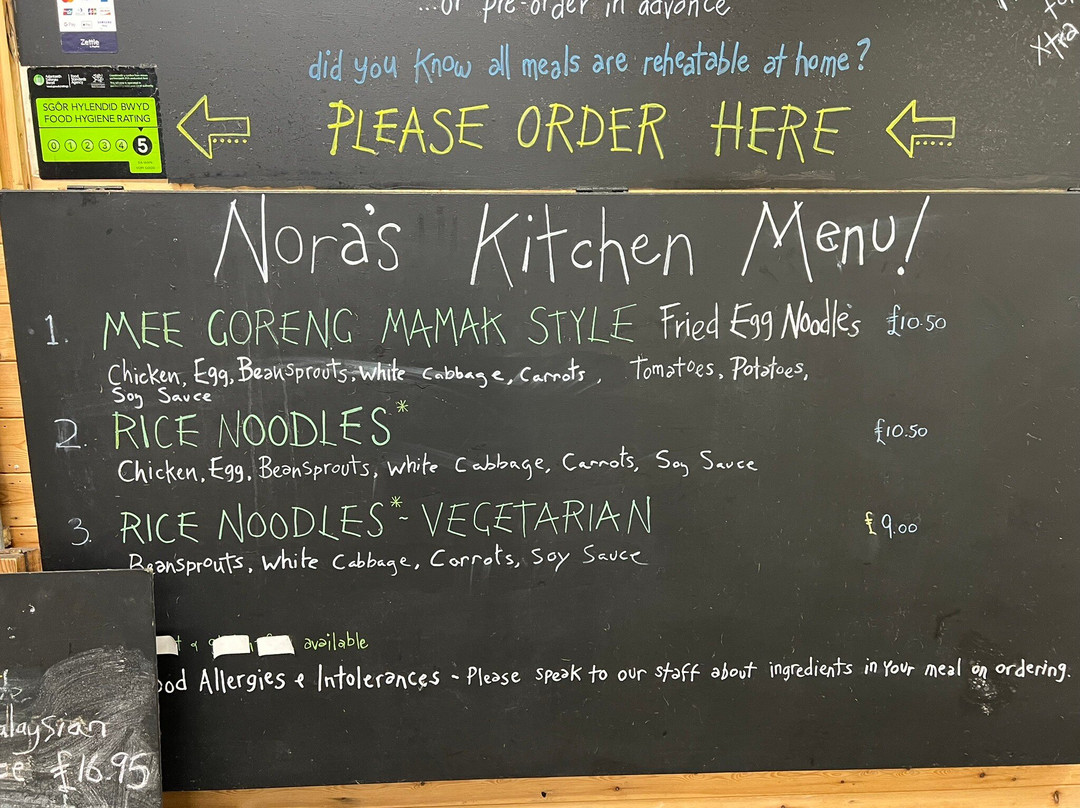 ...or pre-order in advance
xtra
did you know all meals are reheatable at home?
Zettle
SGÔR HYLENDID BWYD
FOOD HYGIENE RATING
0 1 2 3 4 5
PLEASE ORDER HERE
Nora's Kitchen Menu!
1. MEE GORENG MAMAK STYLE Fried Egg Noodles £10.50
Chicken, Egg, Beansprouts, White Cabbage, Carrots, Tomatoes, Potatoes,
Soy Sauce
2. RICE NOODLES* £10.50
Chicken, Egg, Beansprouts, White Cabbage, Carrots, Soy Sauce
3. RICE NOODLES* - VEGETARIAN £9.00
Beansprouts, White Cabbage, Carrots, Soy Sauce
available
ood Allergies & Intolerances - Please speak to our staff about ingredients in your meal on ordering.
alaysian
£16.95